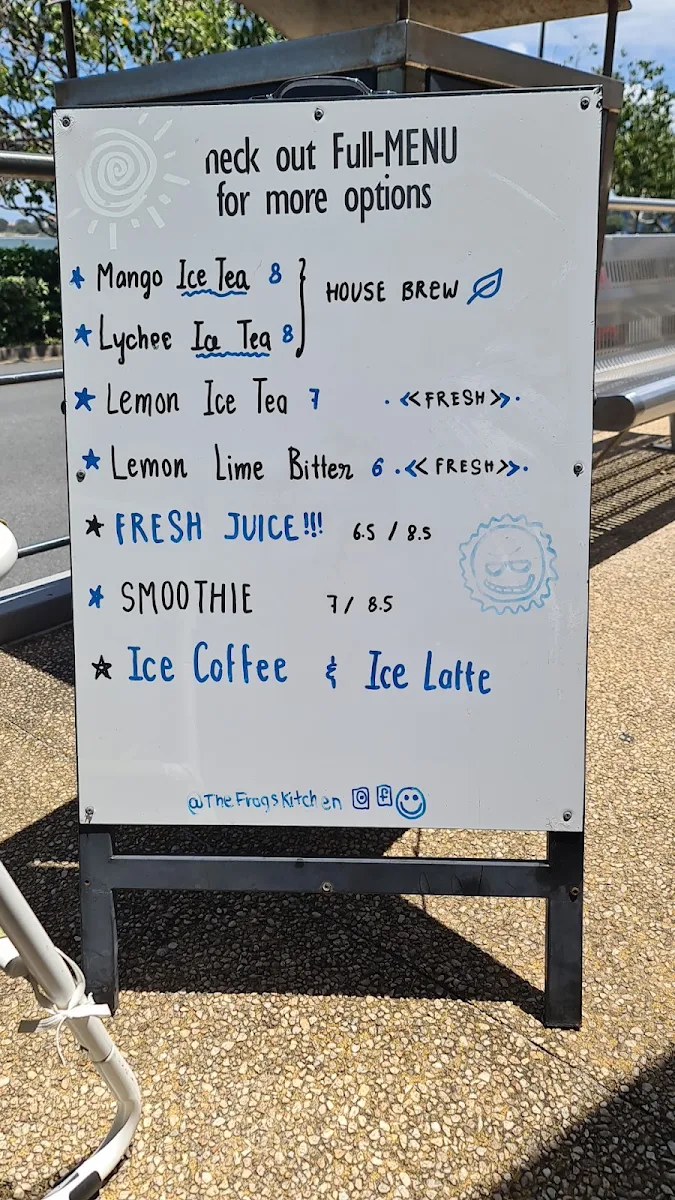 neck out Full-MENU
for more options
Mango Ice Tea 8
Lychee Ice Tea 8
HOUSE BREW
Lemon Ice Tea 7 <<FRESH>>
Lemon Lime Bitter 6 <<FRESH>>
FRESH JUICE!!! 6.5 / 8.5
SMOOTHIE 7 / 8.5
Ice Coffee & Ice Latte
@TheFrogsKitchen